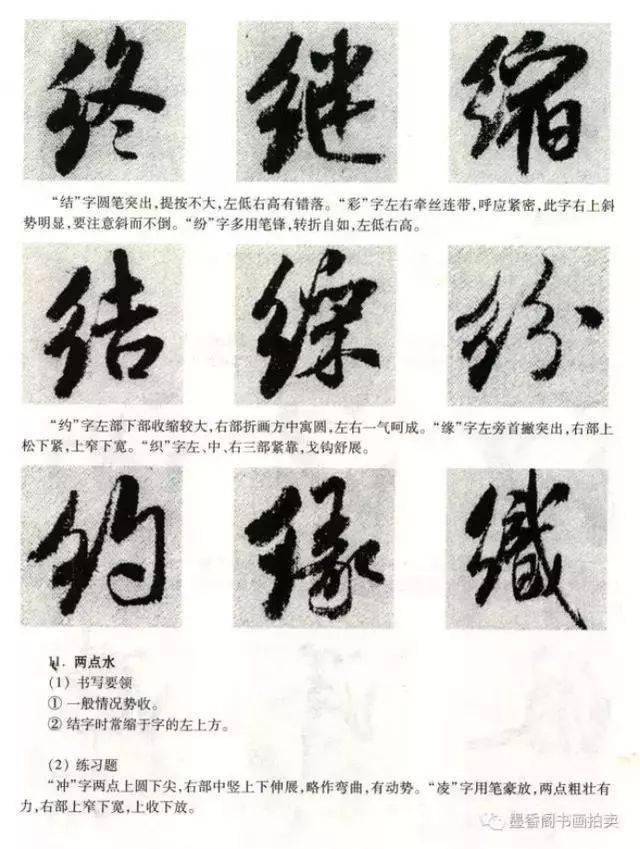 终 继 缩
“结”字圆笔突出，提按不大，左低右高有错落。“彩”字左右牵丝连带，呼应紧密，此字右上斜
势明显，要注意斜而不倒。“纷”字多用笔锋，转折自如，左低右高。
结 纷
“约”字左部下部收缩较大，右部折画方中寓圆，左右一气呵成。“缘”字左旁首撇突出，右部上
松下紧，上窄下宽。“织”字左、中、右三部紧靠，戈钩舒展。
约 缘 织
11. 两点水
(1) 书写要领
① 一般情况势收。
② 结字时常缩于字的左上方。
(2) 练习题
“冲”字两点上圆下尖，右部中竖上下伸展，略作弯曲，有动势。“凌”字用笔豪放，两点粗壮有
力，右部上窄下宽，上收下放。
墨香阁书画拍卖